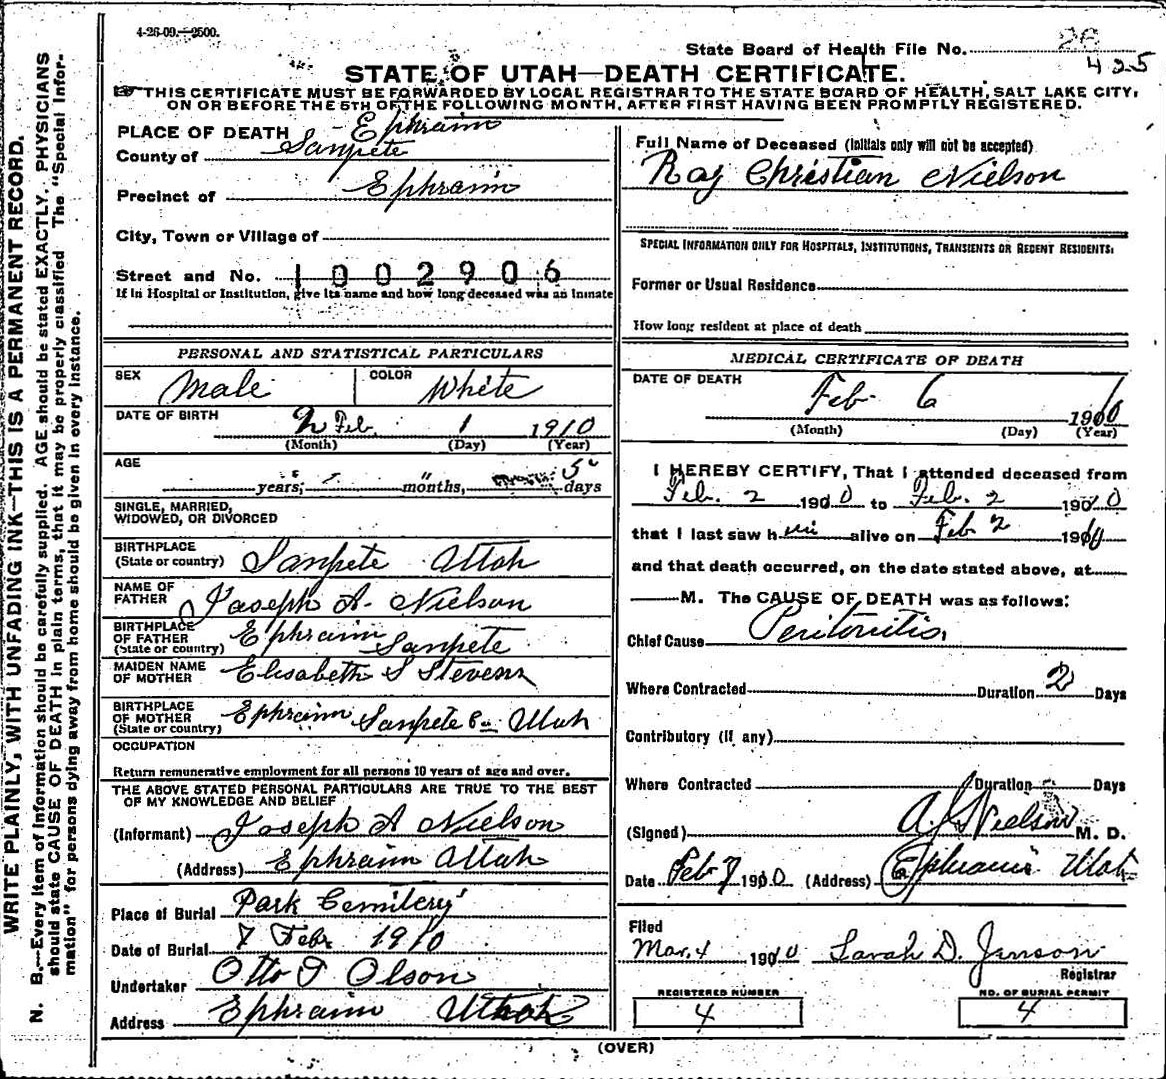 4-26-09.—2500.
State Board of Health File No. 26
425
STATE OF UTAH—DEATH CERTIFICATE.
THIS CERTIFICATE MUST BE FORWARDED BY LOCAL REGISTRAR TO THE STATE BOARD OF HEALTH, SALT LAKE CITY,
ON OR BEFORE THE 5TH OF THE FOLLOWING MONTH, AFTER FIRST HAVING BEEN PROMPTLY REGISTERED.
WRITE PLAINLY, WITH UNFADING INK—THIS IS A PERMANENT RECORD.
N. B.—Every item of information should be carefully supplied. AGE should be stated EXACTLY. PHYSICIANS
should state CAUSE OF DEATH in plain terms, that it may be properly classified The "Special Infor-
mation" for persons dying away from home should be given in every instance.
PLACE OF DEATH - Ephraim
County of Sanpete
Precinct of Ephraim
City, Town or Village of
Street and No. 1002906
If in Hospital or Institution, give its name and how long deceased was an inmate
PERSONAL AND STATISTICAL PARTICULARS
SEX Male COLOR White
DATE OF BIRTH Feb. 1 1910
(Month) (Day) (Year)
AGE
years, months, 5 days
SINGLE, MARRIED,
WIDOWED, OR DIVORCED
BIRTHPLACE
(State or country) Sanpete Utah
NAME OF
FATHER Joseph A. Nielson
BIRTHPLACE
OF FATHER Ephraim Sanpete
(State or country)
MAIDEN NAME
OF MOTHER Elisabeth S Stevens
BIRTHPLACE
OF MOTHER Ephraim Sanpete Co Utah
(State or country)
OCCUPATION
Return remunerative employment for all persons 10 years of age and over.
THE ABOVE STATED PERSONAL PARTICULARS ARE TRUE TO THE BEST
OF MY KNOWLEDGE AND BELIEF
(Informant) Joseph A Nielson
(Address) Ephraim Utah
Place of Burial Park Cemitery
Date of Burial 7 Febr 1910
Undertaker Otto T Olson
Address Ephraim Utah
Full Name of Deceased (Initials only will not be accepted)
Ray Christian Nielson
SPECIAL INFORMATION ONLY FOR HOSPITALS, INSTITUTIONS, TRANSIENTS OR RECENT RESIDENTS:
Former or Usual Residence
How long resident at place of death
MEDICAL CERTIFICATE OF DEATH
DATE OF DEATH Feb 6 1910
(Month) (Day) (Year)
I HEREBY CERTIFY, That I attended deceased from
Feb. 2 1910 to Feb. 2 1910
that I last saw him alive on Feb 2 1910
and that death occurred, on the date stated above, at
M. The CAUSE OF DEATH was as follows:
Chief Cause Peritonitis,
Where Contracted Duration 2 Days
Contributory (if any)
Where Contracted Duration Days
(Signed) Nielson M. D.
Date Feb 7 1910 (Address) Ephraim Utah
Filed
Mar. 4 1910 Sarah D. Jenson
Registrar
REGISTERED NUMBER NO. OF BURIAL PERMIT
4 4
(OVER)